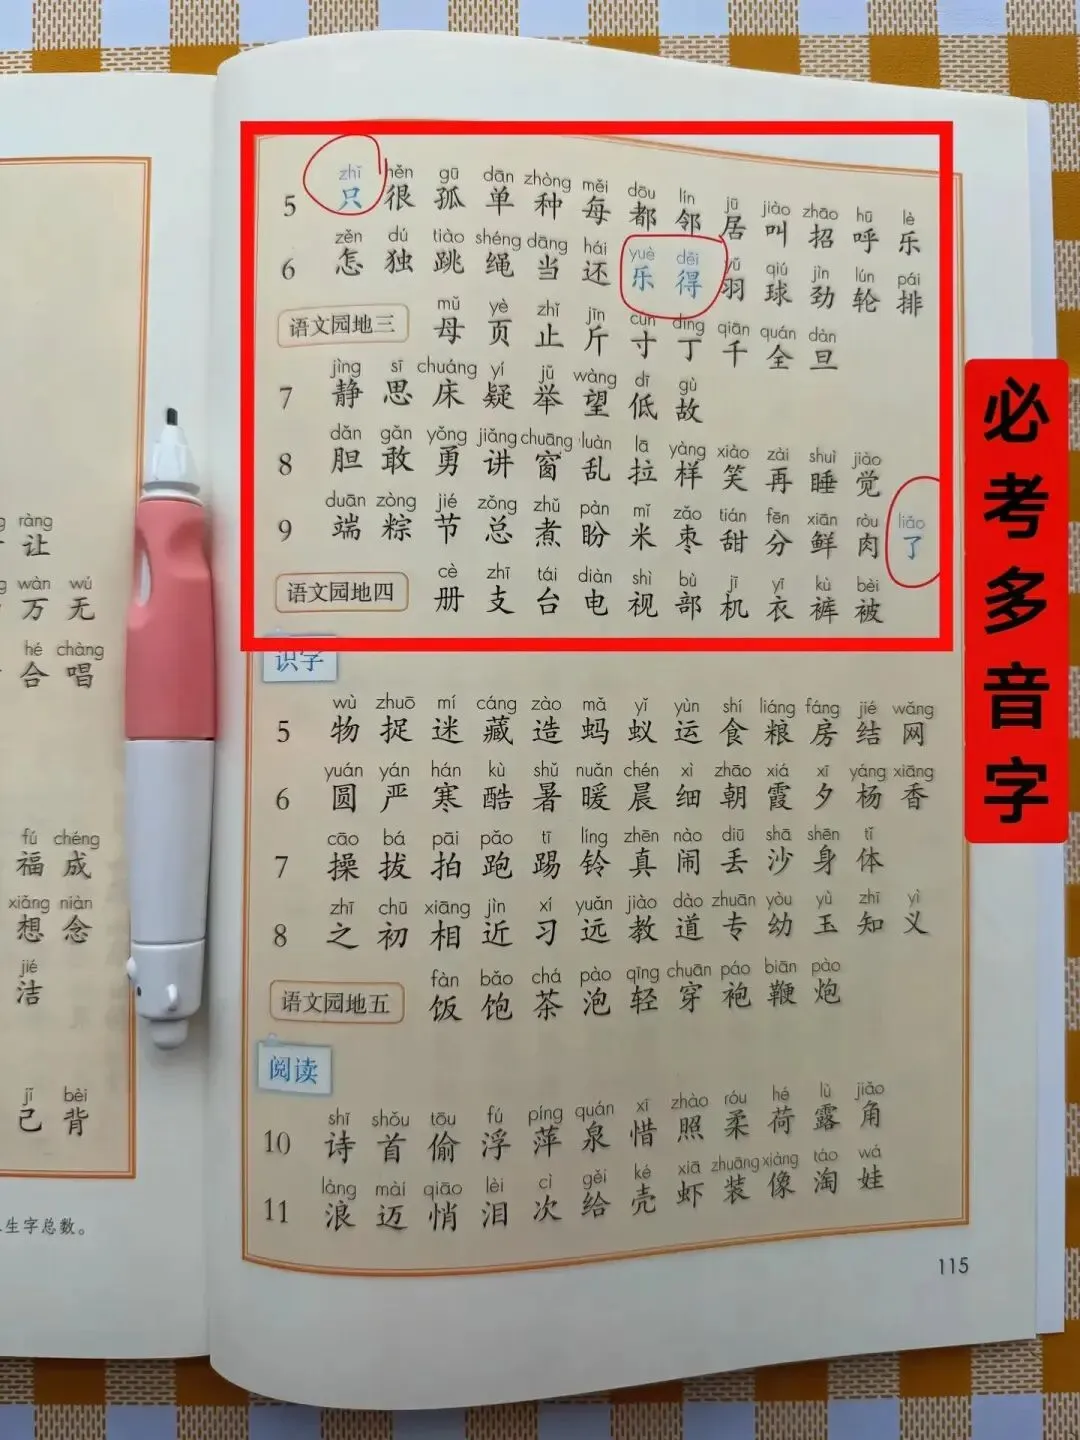 ràng
让
wàn wú
万 无
hé chàng
合 唱
fú chéng
福 成
xiǎng niàn
想 念
jié
洁
jǐ bèi
己 背
生字总数。
zhǐ hěn gū dān zhòng měi dōu lín jū jiào zhāo hū lè
5 只 很 孤 单 种 每 都 邻 居 叫 招 呼 乐
zěn dú tiào shéng dāng hái yuè děi yǔ qiú jìn lún pái
6 怎 独 跳 绳 当 还 乐 得 羽 球 劲 轮 排
mǔ yè zhǐ jīn cùn dīng qiān quán dàn
语文园地三 母 页 止 斤 寸 丁 千 全 旦
jìng sī chuáng yí jǔ wàng dī gù
7 静 思 床 疑 举 望 低 故
dǎn gǎn yǒng jiǎng chuāng luàn lā yàng xiào zài shuì jiào
8 胆 敢 勇 讲 窗 乱 拉 样 笑 再 睡 觉
duān zòng jié zǒng zhǔ pàn mǐ zǎo tián fēn xiān ròu liǎo
9 端 粽 节 总 煮 盼 米 枣 甜 分 鲜 肉 了
cè zhī tái diàn shì bù jī yī kù bèi
语文园地四 册 支 台 电 视 部 机 衣 裤 被
识字
wù zhuō mí cáng zào mǎ yǐ yùn shí liáng fáng jié wǎng
5 物 捉 迷 藏 造 蚂 蚁 运 食 粮 房 结 网
yuán yán hán kù shǔ nuǎn chén xì zhāo xiá xī yáng xiāng
6 圆 严 寒 酷 暑 暖 晨 细 朝 霞 夕 杨 香
cāo bá pāi pǎo tī líng zhēn nào diū shā shēn tǐ
7 操 拔 拍 跑 踢 铃 真 闹 丢 沙 身 体
zhī chū xiāng jìn xí yuǎn jiào dào zhuān yòu yù zhī yì
8 之 初 相 近 习 远 教 道 专 幼 玉 知 义
fàn bǎo chá pào qīng chuān páo biān pào
语文园地五 饭 饱 茶 泡 轻 穿 袍 鞭 炮
阅读
shī shǒu tōu fú píng quán xī zhào róu hé lù jiǎo
10 诗 首 偷 浮 萍 泉 惜 照 柔 荷 露 角
làng mài qiāo lèi cì gěi ké xiā zhuāng xiàng táo wá
11 浪 迈 悄 泪 次 给 壳 虾 装 像 淘 娃
115
必考多音字